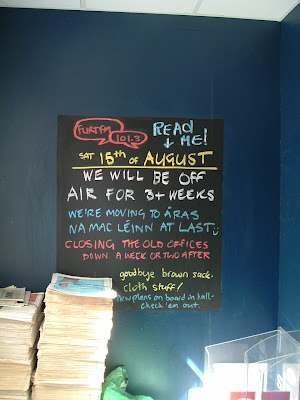 FLIRTFM
101.3
READ
↓ ME!
SAT 15th OF AUGUST
WE WILL BE OFF
AIR FOR 3+ WEEKS
WE'RE MOVING TO ÁRAS
NA MAC LÉINN AT LAST :)
CLOSING THE OLD OFFICES
DOWN A WEEK OR TWO AFTER
goodbye brown sack-
cloth stuff!
new plans on board in hall-
check 'em out.